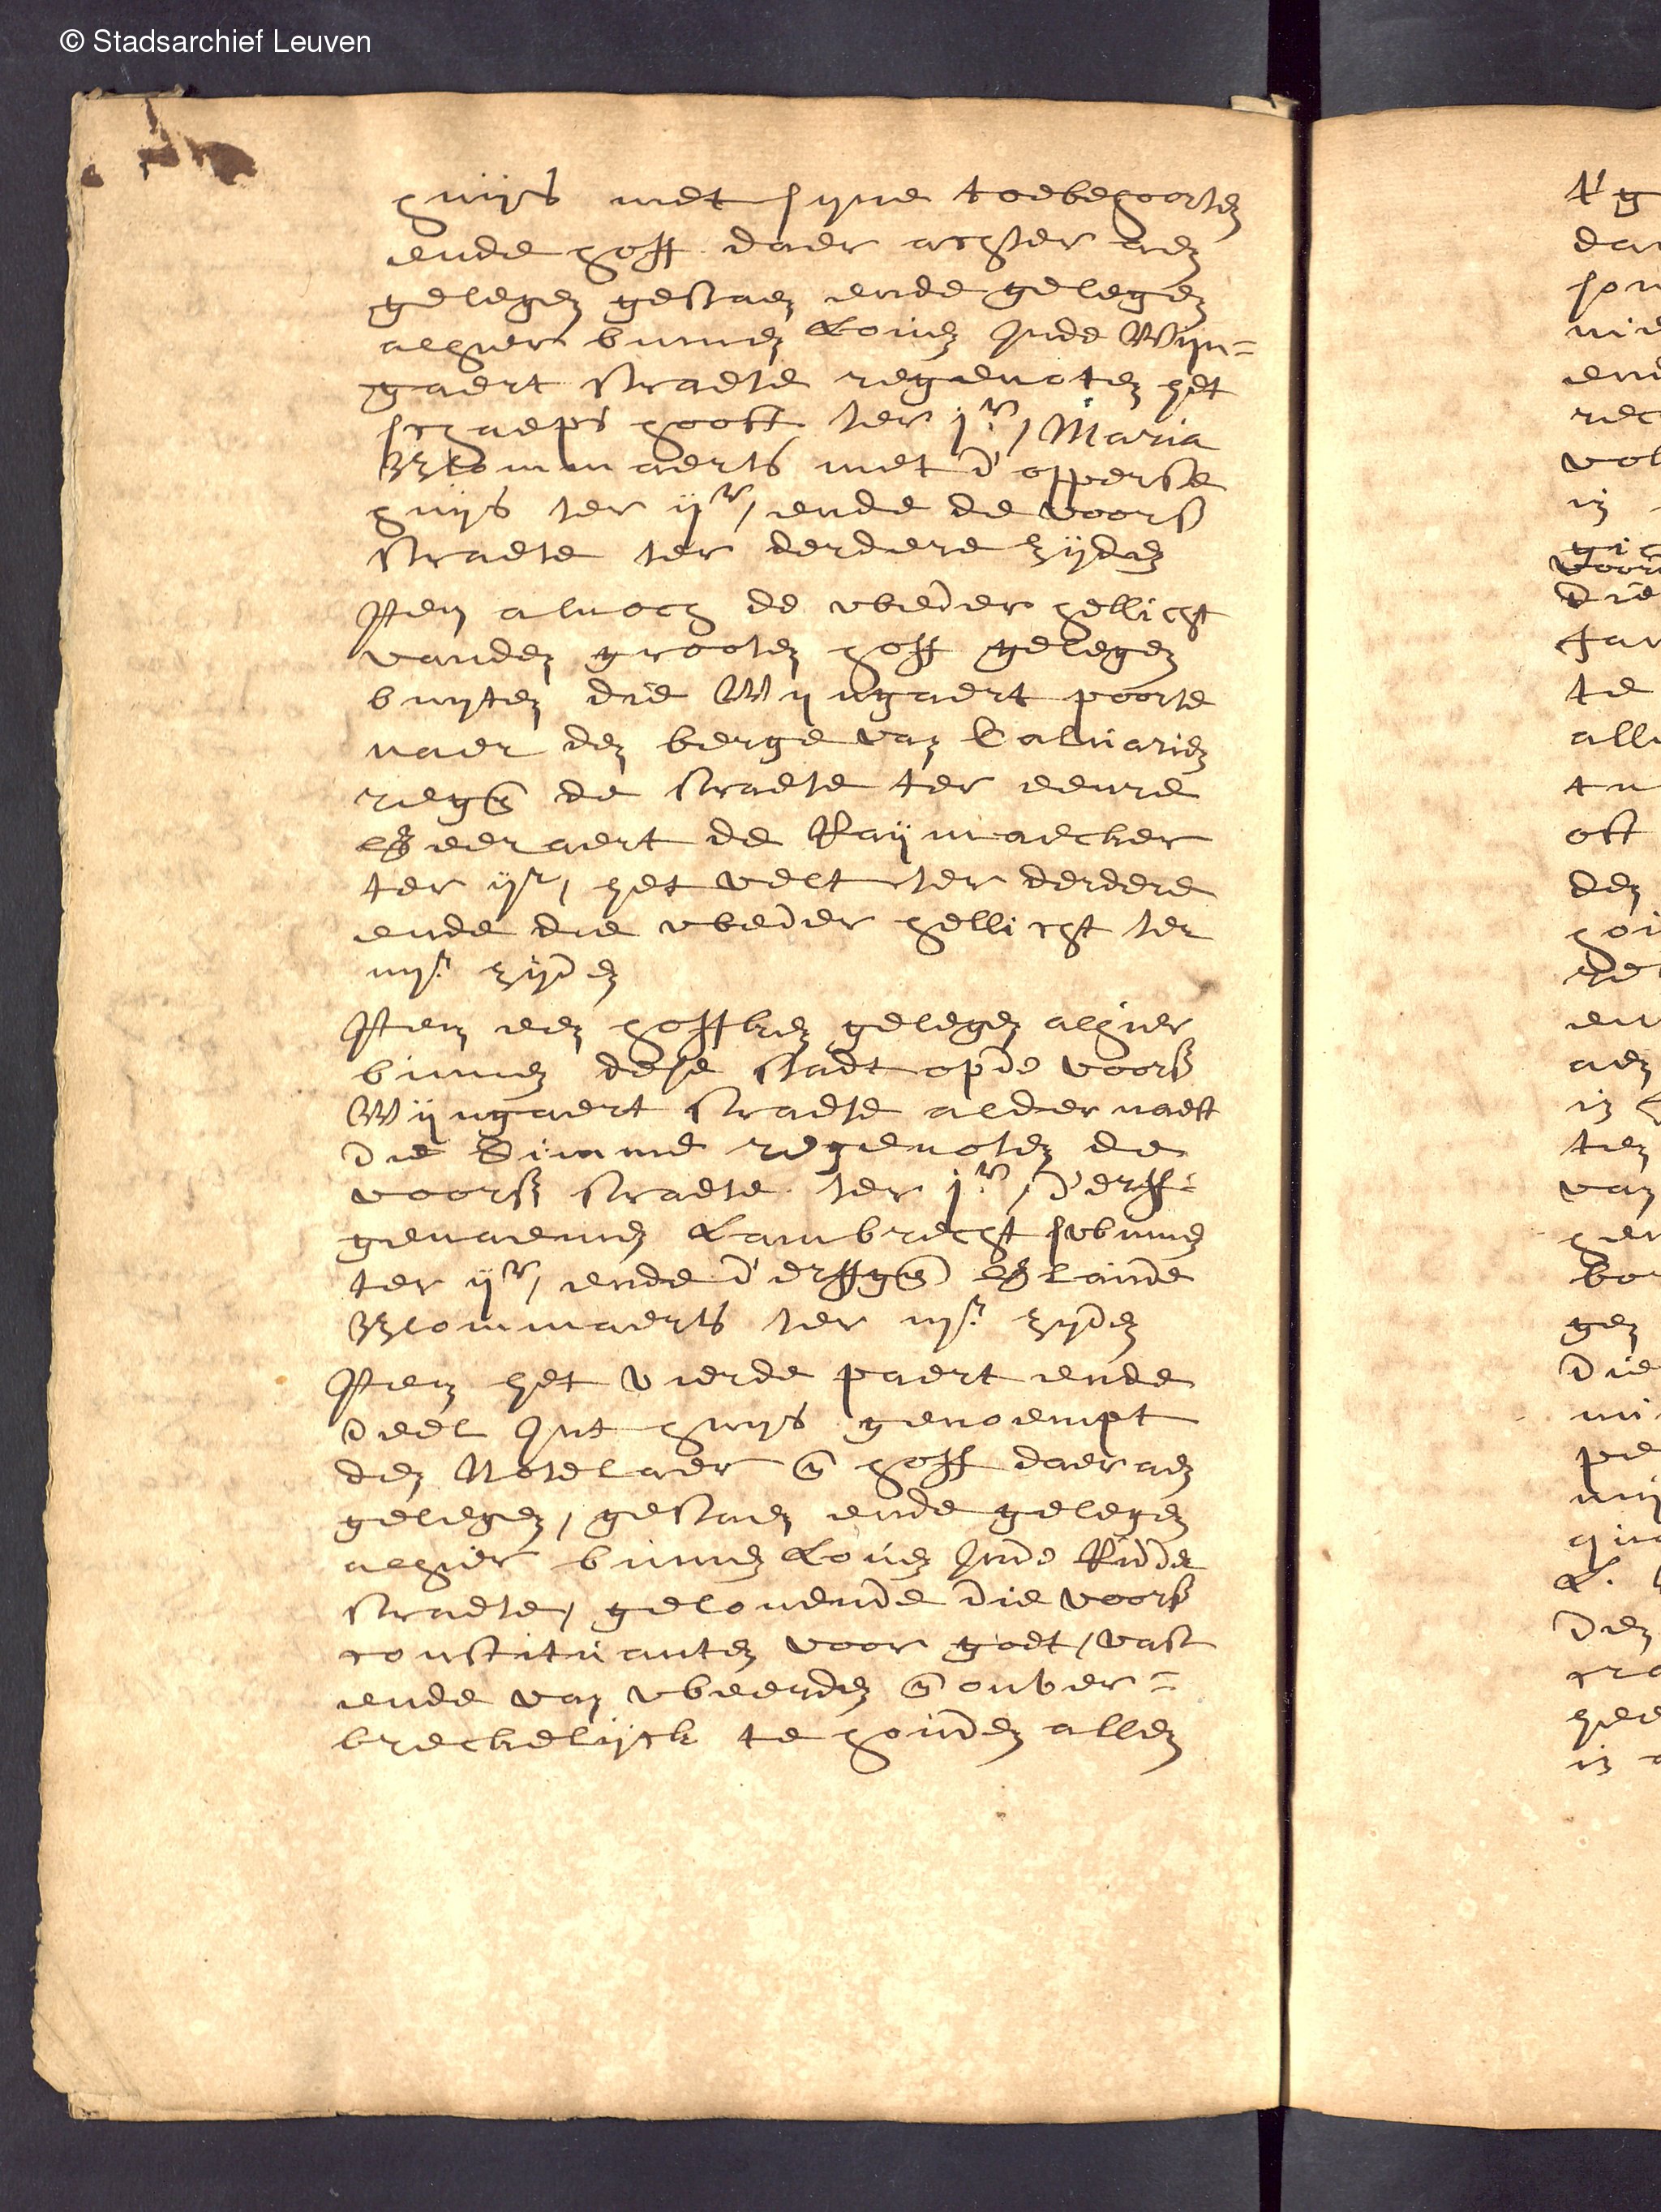 © Stadsarchief Leuven
huijs met syne toebehoorten
ende hoff daer achter aen
gelegen gestaen ende gelegen
alhier binnen Loven Inde Wijn=
gaert straete regenoten het
schaeps hooft ter jr, Maria
Blommaerts met d'opperste
huijs ter ijr, ende de voors
straete ter derdere zijden
Item alnoch de wederhellicht
vanden grooten hoff gelegen
buijten die Wijngaert poorte
naer den berge van Calvarien
regen de straete ter eenre
Geeraert de Raijmaecker
ter ijr, het velt ter derdere
ende die wederhellicht ter
iiijr zijden
Item een hoffken gelegen alhier
binnen dese stadt opde voors
Wijngaert straete aldernaest
die Simme regenoten de
voors straete ter jr, d'erff=
genaemen Lambrecht
ter ijr, ende d'erffgen
Blommaerts ter iijr zijden
Item het vierde paert ende
deel Int huijs genoempt
den Notelaer en hoff daer aen
gelegen, gestaen ende gelegen
alhier binnen Loven Inde Ridder
straete, gelovende die voors
constituanten voor goet, vast
ende van weerden en onver=
breckelijck te houden allen